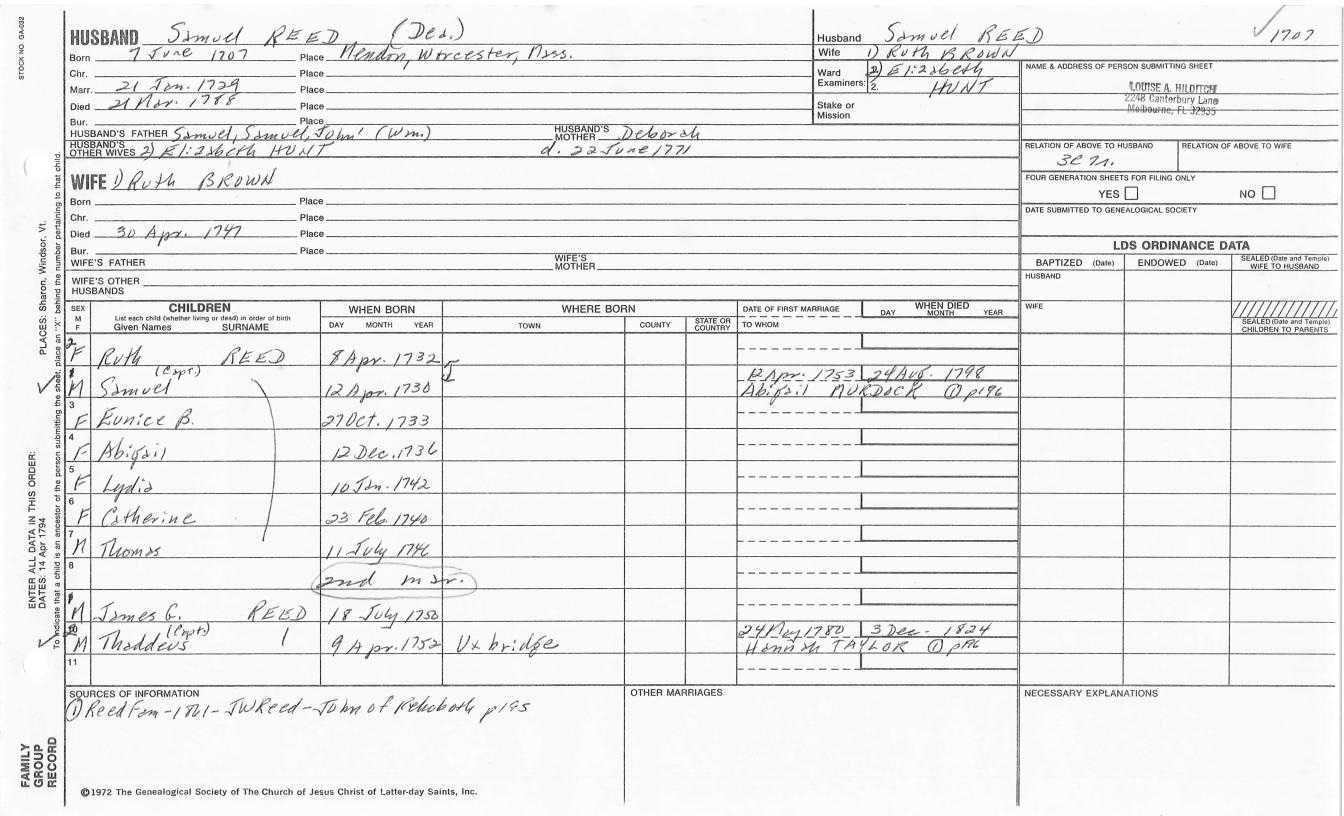 STOCK NO. GA-032
HUSBAND Samuel REED (Dea.)
Born 7 June 1707 Place Mendon, Worcester, Mass.
Chr. Place
Marr. 21 Jan. 1729 Place
Died 21 Mar. 1788 Place
Bur. Place
HUSBAND'S FATHER Samuel, Samuel, John' (Wm.) HUSBAND'S MOTHER Deborah
HUSBAND'S OTHER WIVES 2) Elizabeth HUNT d. 22 June 1771
WIFE 1) Ruth BROWN
Born Place
Chr. Place
Died 30 Apr. 1747 Place
Bur. Place
WIFE'S FATHER WIFE'S MOTHER
WIFE'S OTHER HUSBANDS
Husband Samuel REED 1707
Wife 1) Ruth BROWN
Ward Examiners: 2) Elizabeth
2. HUNT
Stake or Mission
NAME & ADDRESS OF PERSON SUBMITTING SHEET
LOUISE A. HILDITCH
2248 Canterbury Lane
Melbourne, FL 32935
RELATION OF ABOVE TO HUSBAND RELATION OF ABOVE TO WIFE
FOUR GENERATION SHEETS FOR FILING ONLY
YES NO
DATE SUBMITTED TO GENEALOGICAL SOCIETY
LDS ORDINANCE DATA
BAPTIZED (Date) ENDOWED (Date) SEALED (Date and Temple) WIFE TO HUSBAND
HUSBAND
WIFE
SEALED (Date and Temple) CHILDREN TO PARENTS
SEX M F
CHILDREN
List each child (whether living or dead) in order of birth
Given Names SURNAME
WHEN BORN
DAY MONTH YEAR
WHERE BORN
TOWN COUNTY STATE OR COUNTRY
DATE OF FIRST MARRIAGE
TO WHOM
WHEN DIED
DAY MONTH YEAR
2 F Ruth REED 8 Apr. 1732
1 M Samuel (Capt.) 12 Apr. 1730 12 Apr. 1753 24 Aug. 1798
Abigail MURDOCK ① p196
3 F Eunice B. 27 Oct. 1733
4 F Abigail 12 Dec. 1736
5 F Lydia 10 Jan. 1742
6 F Catherine 23 Feb. 1740
7 M Thomas 11 July 1746
8 2nd mar.
M James G. REED 18 July 1750
10 M Thaddeus (Capt.) 9 Apr. 1752 Uxbridge 24 May 1780 3 Dec. 1824
Hannah TAYLOR ① p196
11
SOURCES OF INFORMATION
① Reed Fam-1861-JWReed-John of Rehoboth p195
OTHER MARRIAGES
NECESSARY EXPLANATIONS
©1972 The Genealogical Society of The Church of Jesus Christ of Latter-day Saints, Inc.
FAMILY GROUP RECORD
ENTER ALL DATA IN THIS ORDER:
DATES: 14 Apr 1794
PLACES: Sharon, Windsor, Vt.
To indicate that a child is an ancestor of the person submitting the sheet, place an "X" behind the number pertaining to that child.